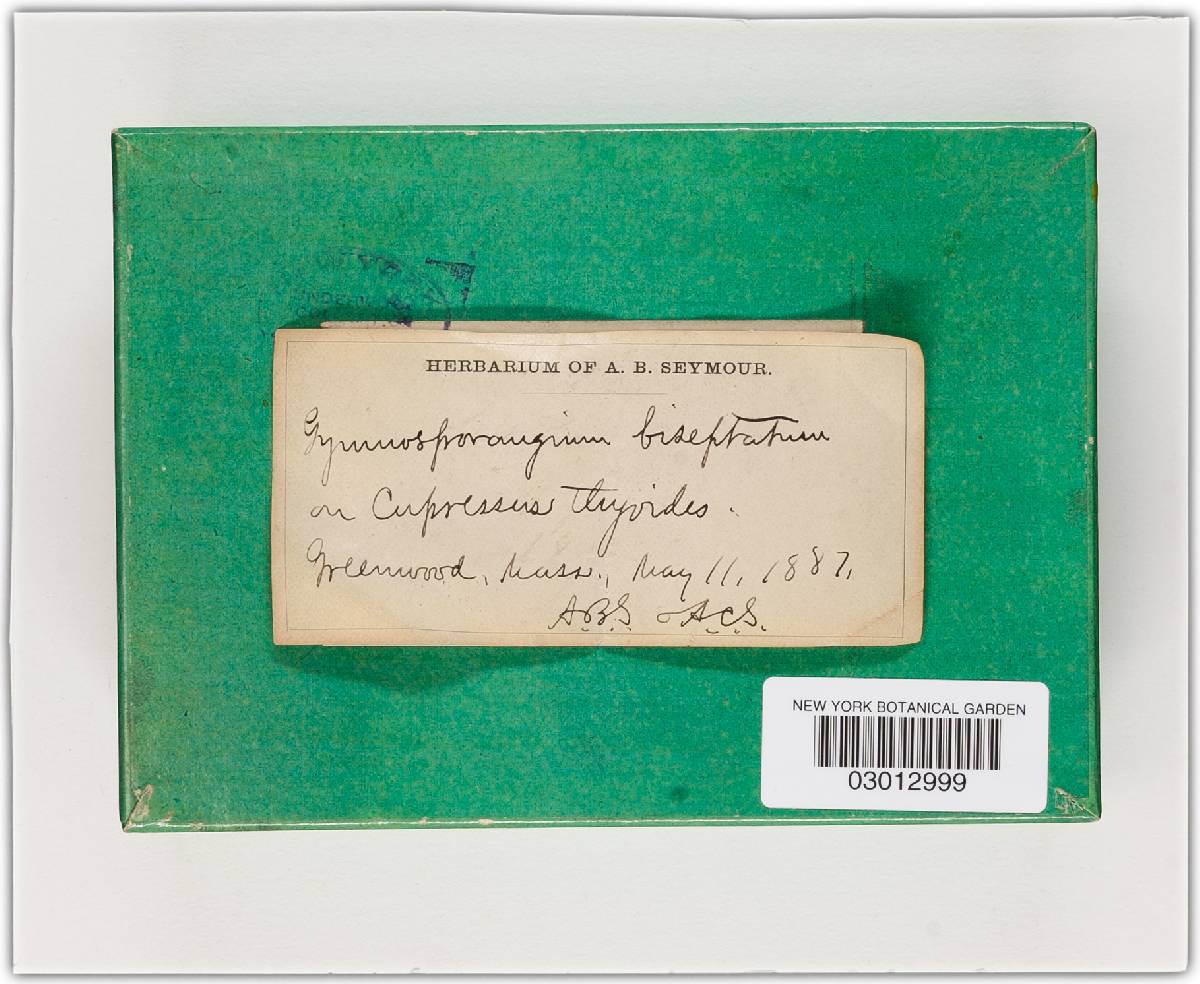 HERBARIUM OF A. B. SEYMOUR.
Gymnosporangium biseptatum
on Cupressus thyoides.
Greenwood, Mass., May 11, 1887.
A.B.S. & A.C.S.
NEW YORK BOTANICAL GARDEN
03012999